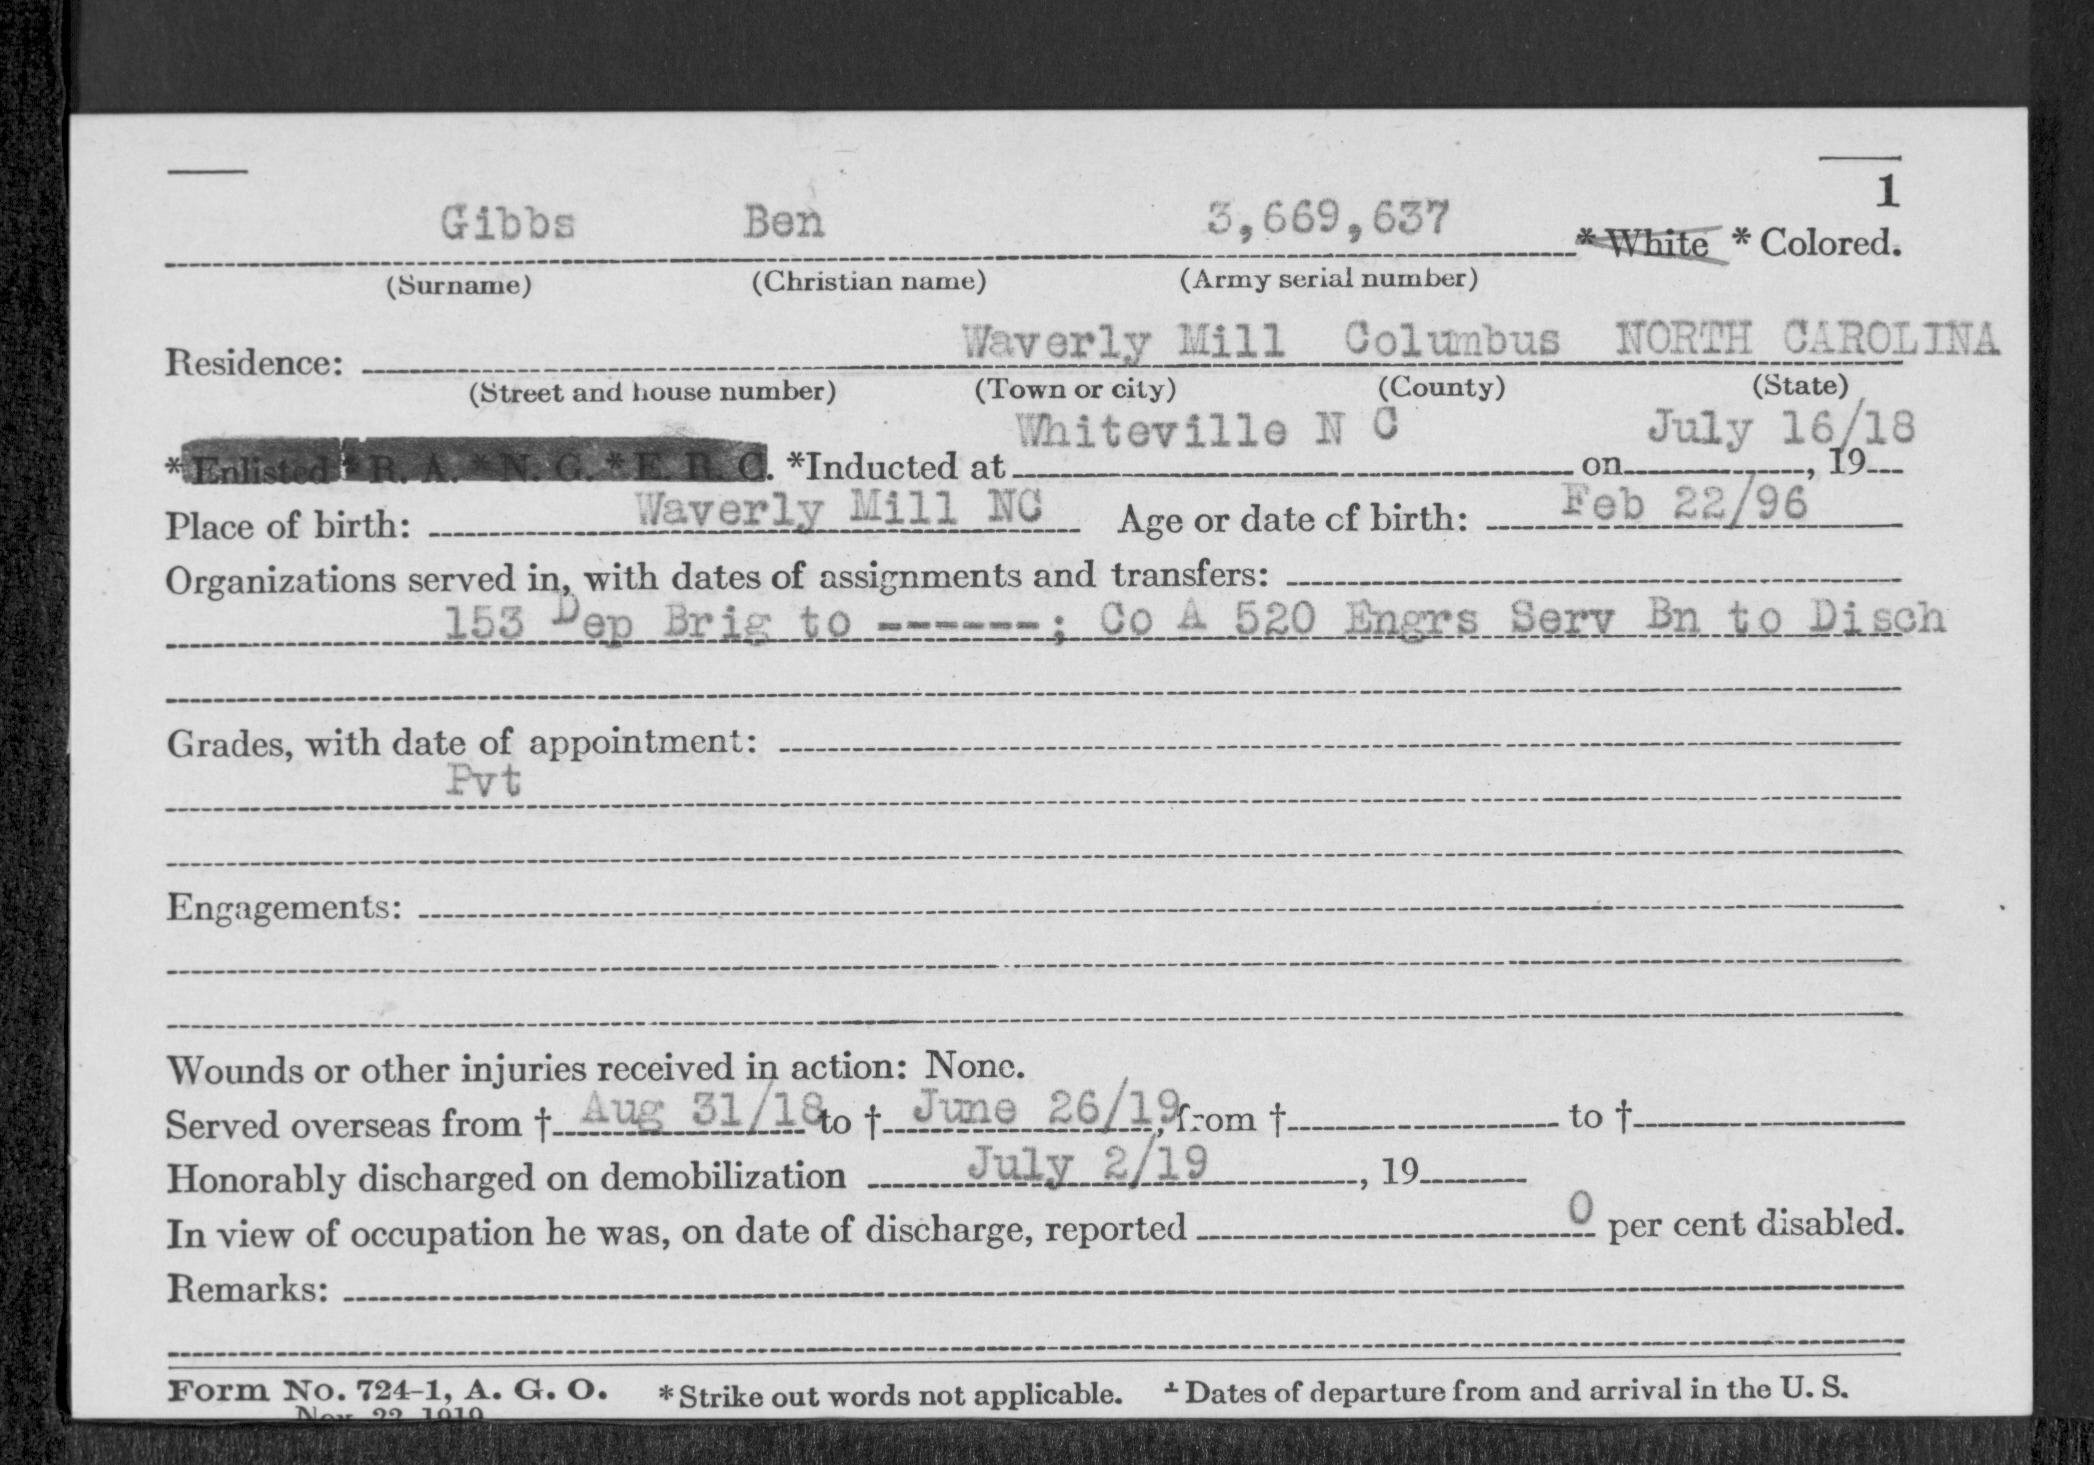 1
Gibbs Ben 3,669,637 * White * Colored.
(Surname) (Christian name) (Army serial number)
Residence: Waverly Mill Columbus NORTH CAROLINA
(Street and house number) (Town or city) (County) (State)
* Enlisted * R. A. * N. G. * E. R. C. *Inducted at Whiteville N C on July 16/18, 19
Place of birth: Waverly Mill NC Age or date of birth: Feb 22/96
Organizations served in, with dates of assignments and transfers:
153 Dep Brig to ------; Co A 520 Engrs Serv Bn to Disch
Grades, with date of appointment:
Pvt
Engagements:
Wounds or other injuries received in action: None.
Served overseas from † Aug 31/18 to † June 26/19, from † to †
Honorably discharged on demobilization July 2/19, 19
In view of occupation he was, on date of discharge, reported 0 per cent disabled.
Remarks:
Form No. 724-1, A. G. O. * Strike out words not applicable. † Dates of departure from and arrival in the U. S.
Nov. 22, 1919